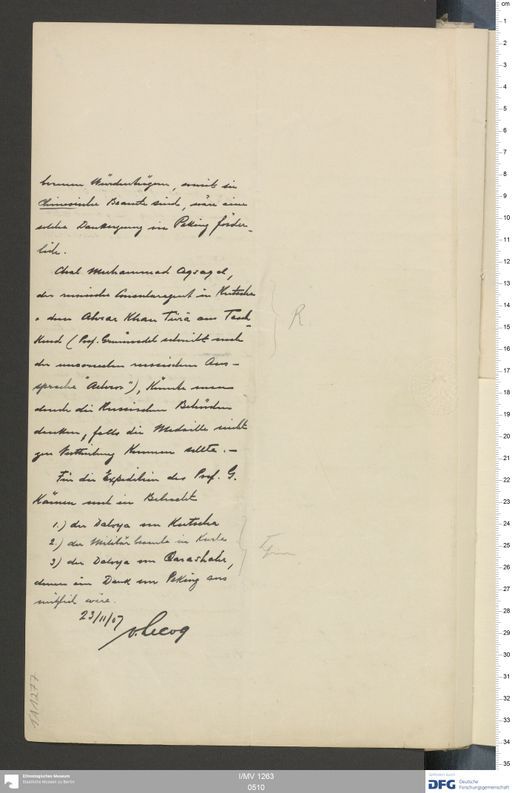 Würdenträgern, soweit sie
chinesische Beamte sind, wäre eine
solche Danksagung in Peking förder-
lich.
Chal Muhammad Aqsaqal,
der russische Consularagent in Kutscha
u. dem Abrar Khan Türä aus Tasch-
kend (Prof. Grünwedel schreibt nach
der russischen Aus-
sprache "Achror"), könnte man
durch die Russischen Behörden
danken, falls die Medaille nicht
zur Verteilung kommen sollte. —
Für die Expedition des Prof. G.
kämen noch in Betracht
1.) der Daloya von Kutscha
2.) der Militärbeamte in Kutscha
3) der Daloya von Qaraschahr,
denen ein Dank von Peking aus
nützlich wäre.
23/11/07
v. Lecoq
R.
1A1277
Ethnologisches Museum
Staatliche Museen zu Berlin
I/MV 1263
0510
DFG Deutsche
Forschungsgemeinschaft
cm
1
2
3
4
5
6
7
8
9
10
11
12
13
14
15
16
17
18
19
20
21
22
23
24
25
26
27
28
29
30
31
32
33
34
35